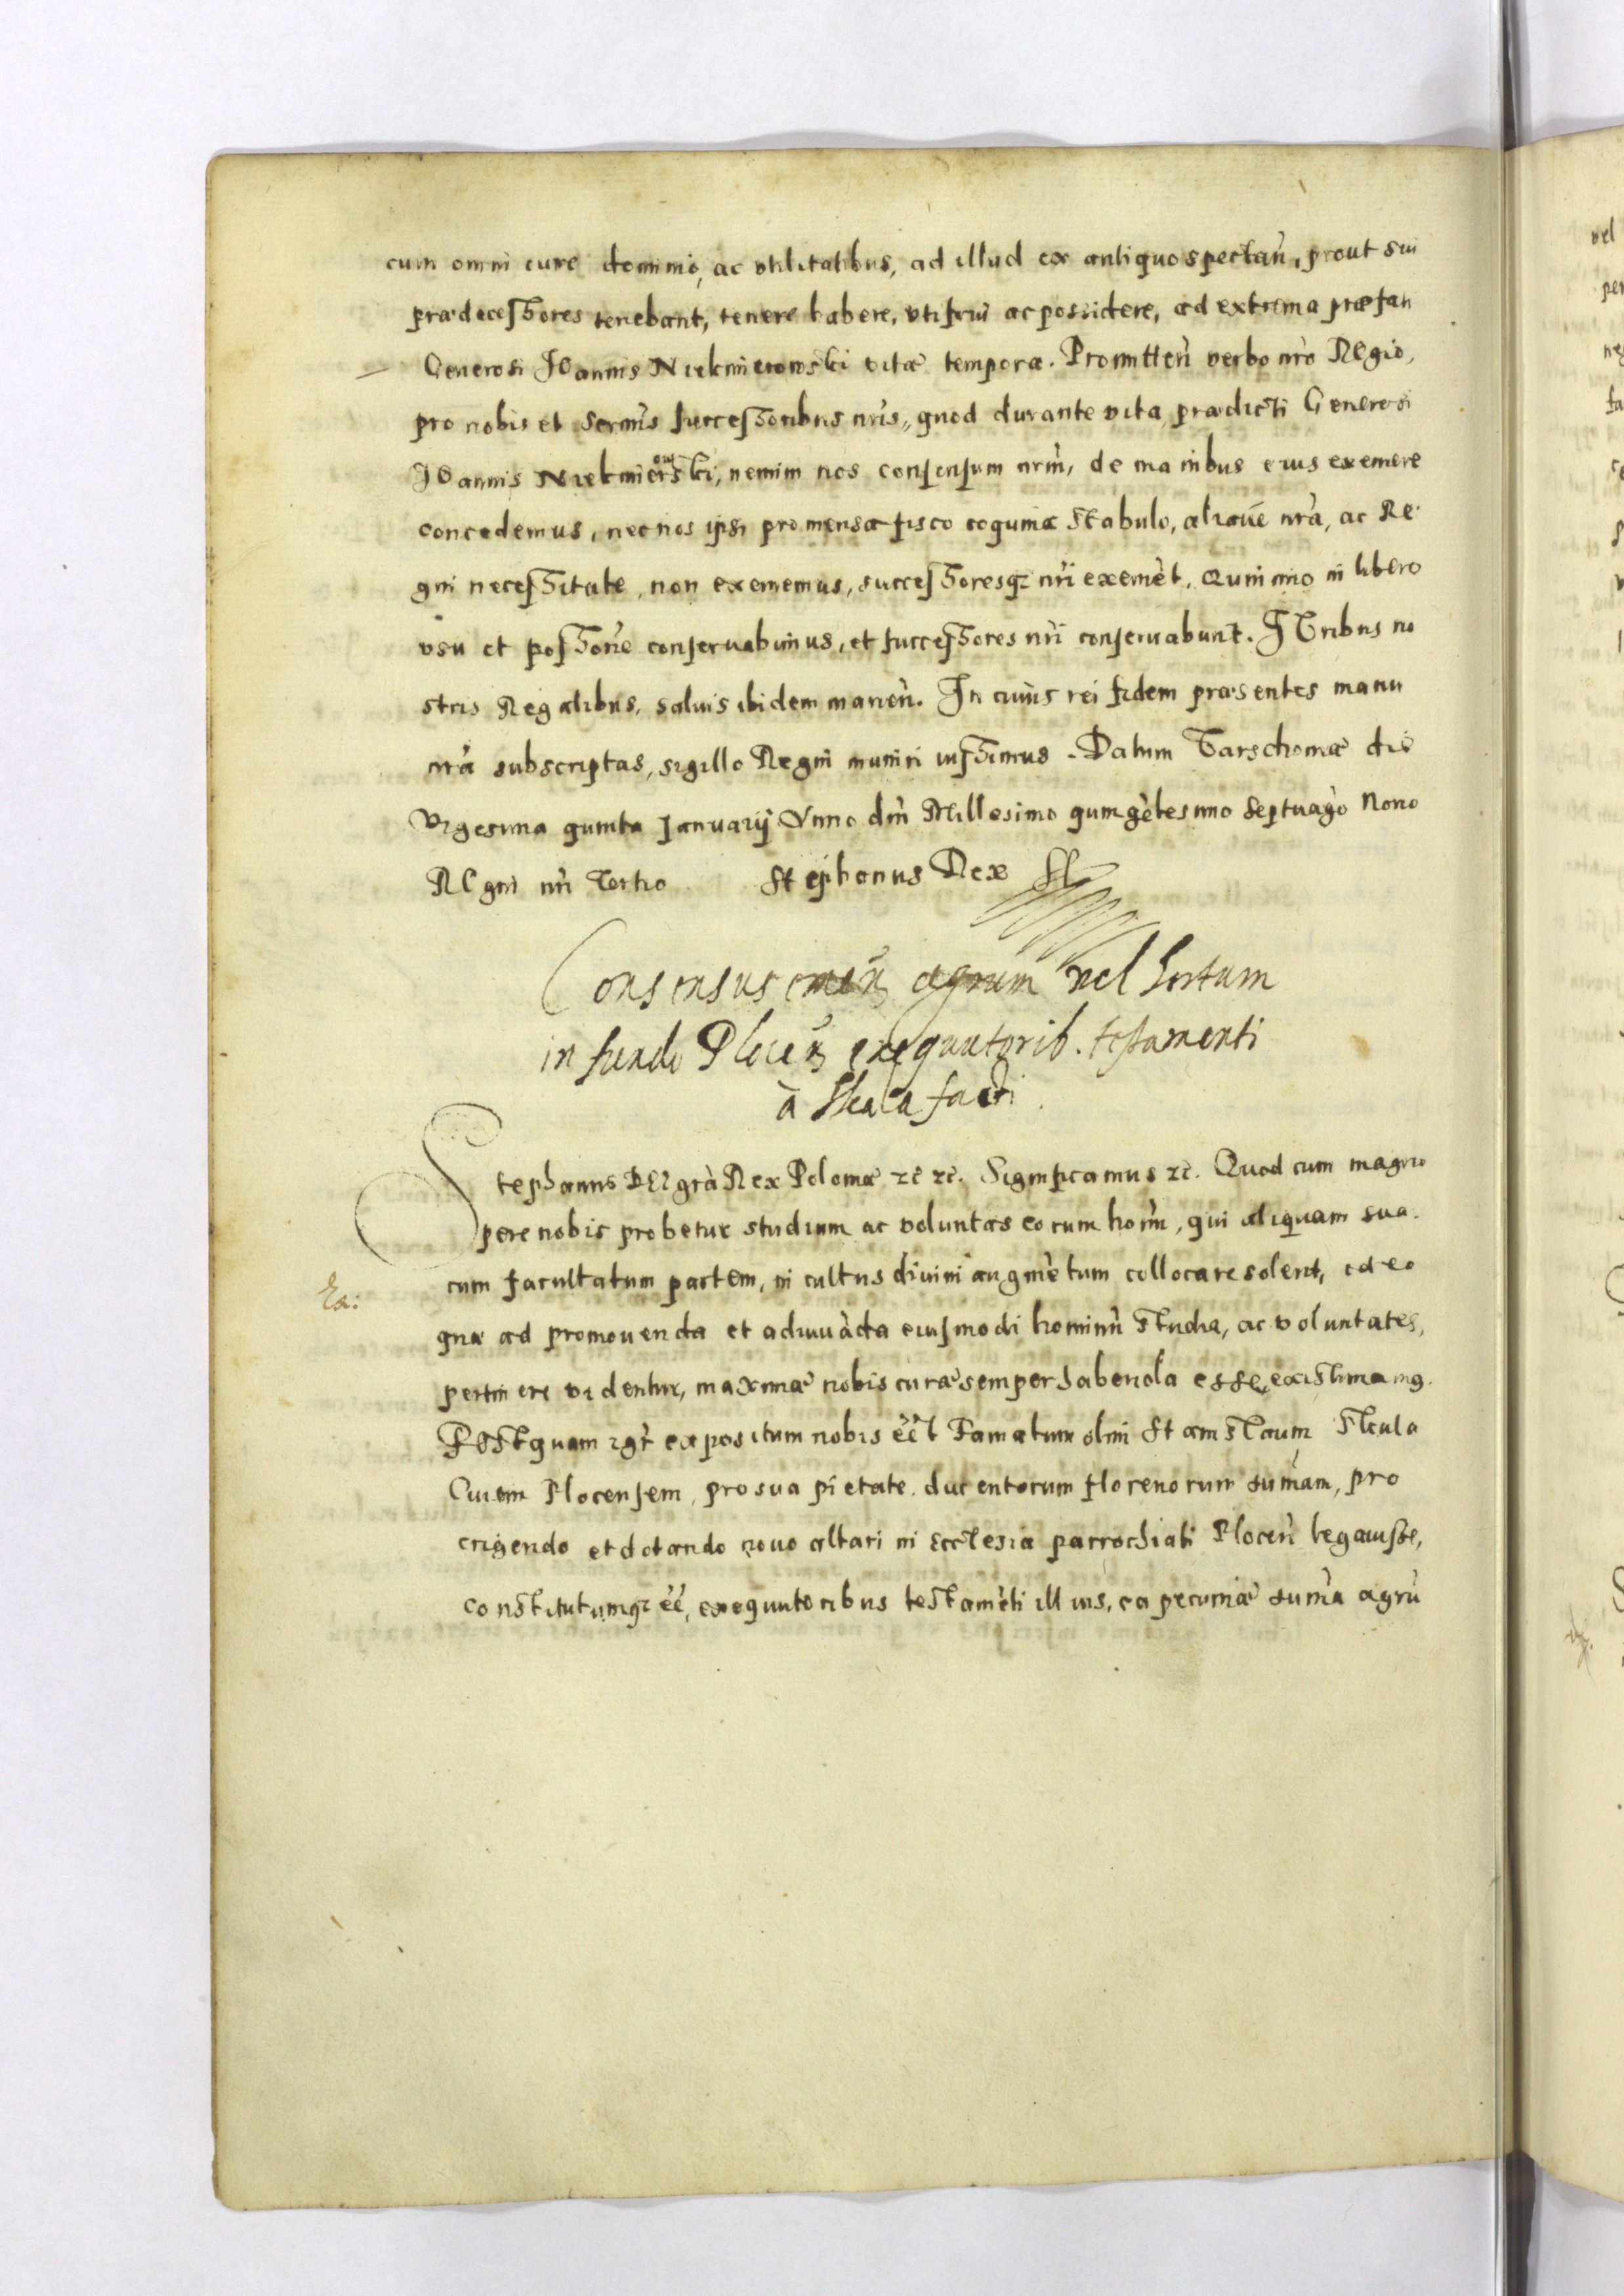 cum omni iure dominio, ac vtilitatibus, ad illud ex antiquo spectan̄, prout sui
prædecessores tenebant, tenere habere, vti frui ac possidere, ad extrema præfan
Generosi Joannis Niekmierowski vitæ tempora. Promitten̄ verbo nr̄o Regio,
pro nobis et Serm̄is successoribus nr̄is, quod durante vita prædicti Generosi
Joannis Niekmierowski, nemini nos consensum nrm̄, de manibus eius exemere
concedemus, nec nos ipsi pro mensa fisco coquina stabulo, aliave nr̄a, ac Re
gni necessitate, non exememus, successoresq; nr̄i exemēt. Quinimo in libero
vsu et possōne conseruabimus, et successores nr̄i conseruabunt. Juribus no
stris Regalibus, saluis ibidem manen̄. In cuius rei fidem præsentes manu
nr̄a subscriptas, sigillo Regni muniri iussimus. Datum Varschoviæ die
Vigesima quinta Januarij Anno dn̄i Millesimo quingētesimo Septuaḡo Nono
Regni nr̄i Tertio Stephanus Rex
Consensus emen̄ agrum vel hortum
in fundo Plocen̄ exequutorib. testamenti
à Skula facti
Stephanus DEI gr̄a Rex Poloniæ zc̄ zc̄. Significamus zc̄. Quod cum magno
pere nobis probetur studium ac voluntas eorum hom̄, qui aliquam sua
rum facultatum partem, in cultus diuini augmētum collocare solent, ad eo
Ea:
quæ ad promouenda et adiuuāda eiusmodi hominū studia, ac voluntates,
pertinere videntur, maximæ nobis curæ semper habenda esse existimamus.
Postquam igr̄ expositum nobis ēēt Famatum olim Stanislaum Skula
Ciuem Plocensem, pro sua pietate ducentorum florenorum sum̄am, pro
erigendo et dotando nouo altari in Ecclesia parrochiali Plocen̄ legauisse,
constitutumq; ēē, exequutoribus testamēti illius, ea pecuniæ sum̄a agrū